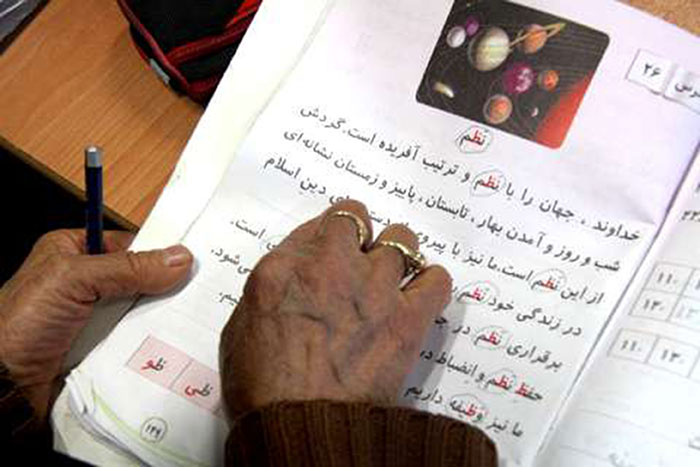 درس ۲۶
نظم
خداوند، جهان را با نظم و ترتیب آفریده است. گردش
شب و روز و آمدن بهار، تابستان، پاییز و زمستان نشانه‌ای
از این نظم است. ما نیز با پیروی دین اسلام
در زندگی خود نظم است.
برقراری نظم در
حفظ نظم و انضباط
ما نیز وظیفه داریم
ظی ظو
۱۴۹
۱۱۰
۱۳۰
۱۱۰ ۱۳۰